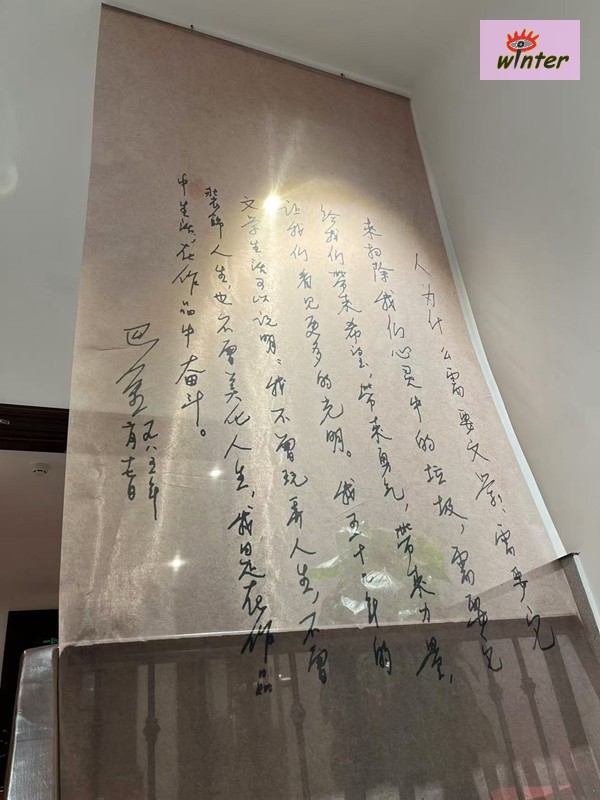 人为什么需要文学？需要它
来扫除我们心灵中的垃圾，需要它
给我们带来希望，带来勇气，带来力量，
让我们看见更多的光明。我五十几年的
文学生活可以说明：我不曾玩弄人生，不曾
装饰人生，也不曾美化人生，我是在作品
中生活，在作品中奋斗。
巴金
八五年
winter